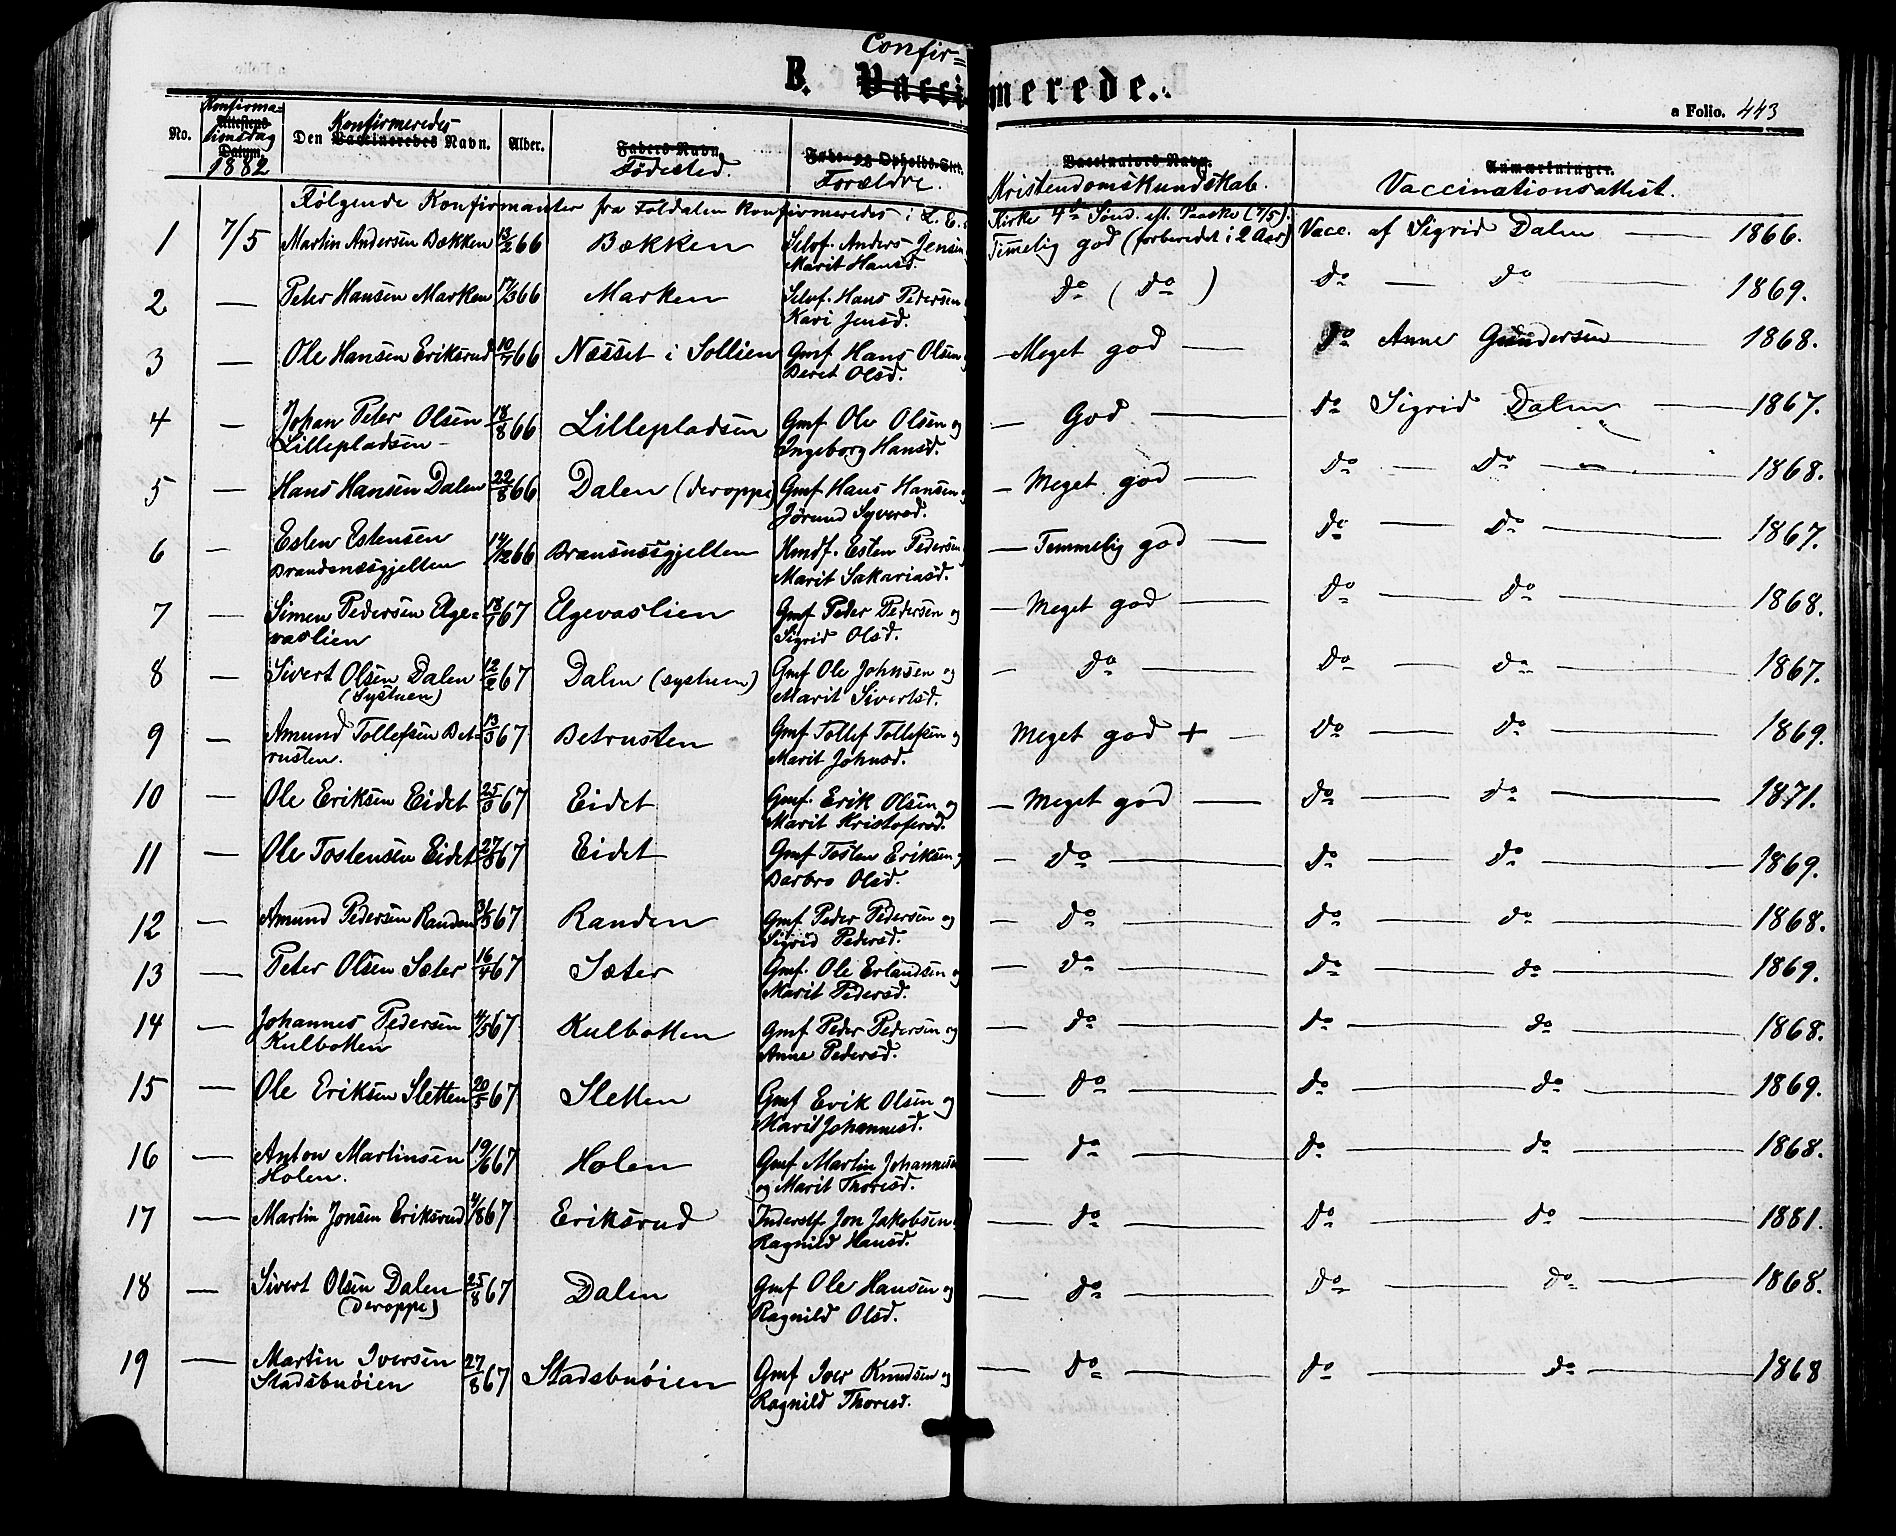 Confir=
B. Vacci merede.
a Folio. 443
No. Konfirma= Attestens tionsdag Datum 1882 Den Konfirmeredes Vaccineredes Navn. Alder. Faders Navn Fødested. Føde- og Opholds-Sted. Forældre. Vaccinators Navn. Kristendomskundskab. Anmærkninger. Vaccinationsattest.
Følgende Konfirmanter fra Foldalen konfirmeredes i L. E. Kirke 4de Sønd. eft. Paaske (7/5).
1 7/5 Martin Andersen Bækken 13/2 66 Bækken Selvf. Anders Jensen Temmelig god (forberedet i 2 Aar) Vacc. af Sigrid Dalen — 1866.
Marit Hansd.
2 — Peter Hansen Marken 17/3 66 Marken Selvf. Hans Pedersen do ( do ) do — do — 1869.
Kari Jensd.
3 — Ole Hansen Eriksrud 10/7 66 Næsset i Sollien Gmf Hans Olsen — Meget god — do Anne Gundersen — 1868.
Beret Olsd.
4 — Johan Peter Olsen 18/8 66 Lillepladsen Gmf Ole Olsen og — God — do Sigrid Dalen — 1867.
Lillepladsen Ingeborg Hansd.
5 — Hans Hansen Dalen 22/8 66 Dalen (deroppe) Gmf Hans Hansen — Meget god — do — do — 1868.
Jørund Syversd.
6 — Esten Estensen 14/12 66 Brænsnesgjelten Hmdf. Esten Pedersen — Temmelig god — do — do — 1867.
Brandsnesgjelten Marit Sakariasd.
7 — Simen Pedersen Elge= 18/1 67 Elgevaslien Gmf Peder Pedersen og — Meget god — do — do — 1868.
vaslien Sigrid Olsd.
8 — Sivert Olsen Dalen 12/2 67 Dalen (systuen) Gmf Ole Johnsen og — do — do — do — 1867.
(Systuen) Marit Sivertsd.
9 — Amund Tollefsen Bet= 13/3 67 Betrusten Gmf Tollef Tollefsen og Meget god + — do — do — 1869.
rusten. Marit Johnsd.
10 — Ole Eriksen Eidet 25/3 67 Eidet Gmf. Erik Olsen og — Meget god — do — do — 1871.
Marit Kristofersd.
11 — Ole Tostensen Eidet 27/3 67 Eidet Gmf Tosten Eriksen — do — do — do — 1869.
Barbro Olsd.
12 — Amund Pedersen Randen 31/3 67 Randen Gmf Peder Pedersen og — do — do — do — 1868.
Sigrid Pedersd.
13 — Peter Olsen Sæter 16/4 67 Sæter Gmf. Ole Erlandsen og — do — do — do — 1869.
Marit Pedersd.
14 — Johannes Pedersen 4/5 67 Kulbotten Gmf Peder Pedersen og — do — do — do — 1868.
Kulbotten Anne Pedersd.
15 — Ole Eriksen Sletten 20/5 67 Sletten Gmf Erik Olsen og — do — do — do — 1869.
Marit Johannesd.
16 — Anton Martinsen 19/6 67 Holen Gmf Martin Johannesen — do — do — do — 1868.
Holen. og Marit Thoresd.
17 — Martin Jonsen Eriksrud 4/8 67 Eriksrud Inderstf. Jon Jakobsen — do — do — do — 1881.
Ragnild Hansd.
18 — Sivert Olsen Dalen 25/8 67 Dalen Gmf Ole Hansen og — do — do — do — 1868.
(deroppe) Ragnild Olsd.
19 — Martin Iversen 27/8 67 Stadsbuøien Gmf Iver Knudsen og — do — do — do — 1868
Stadsbuøien Ragnild Thoresd.